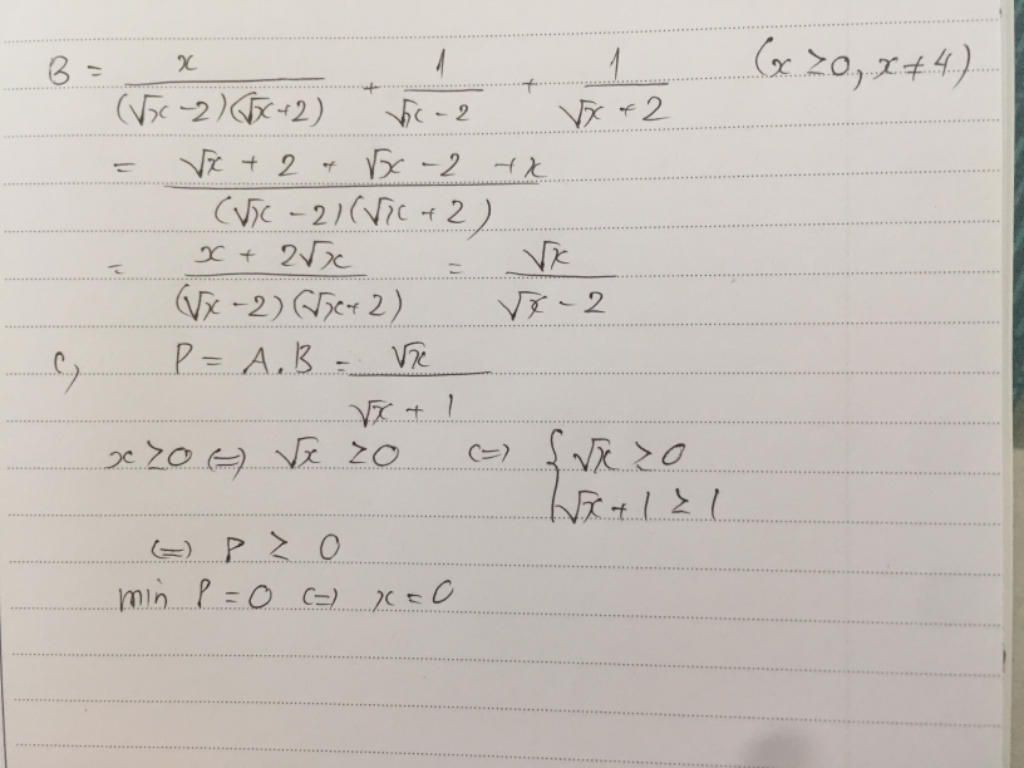 B = x / ((√x - 2)(√x + 2)) + 1 / (√x - 2) + 1 / (√x + 2) (x ≥ 0, x ≠ 4)
= (√x + 2 + √x - 2 + x) / ((√x - 2)(√x + 2))
= (x + 2√x) / ((√x - 2)(√x + 2)) = √x / (√x - 2)
c, P = A.B = √x / (√x + 1)
x ≥ 0 (=) √x ≥ 0 (=) { √x ≥ 0
√x + 1 ≥ 1
(=) P ≥ 0
min P = 0 (=) x = 0